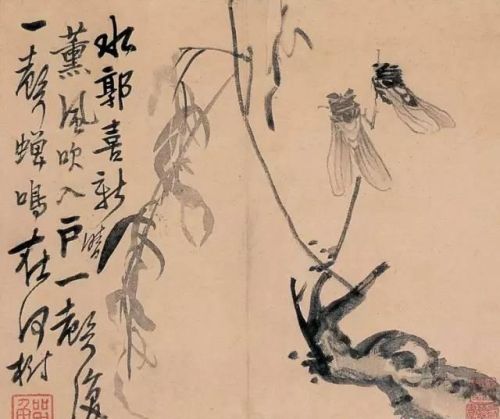 水郭喜新晴
薰風吹入戶一聲復
一聲蟬鳴在何樹